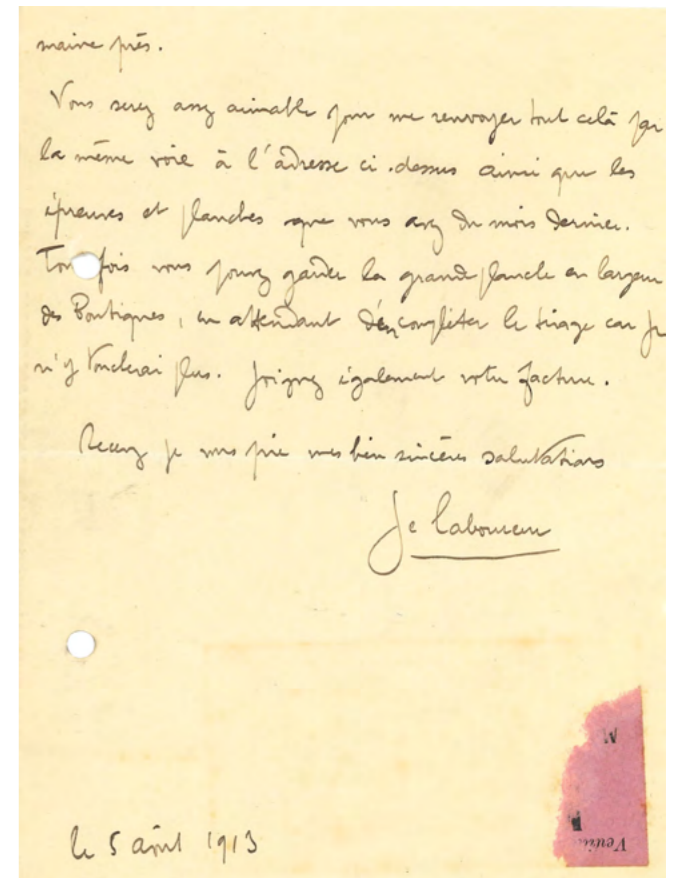 maine près.
Vous serez assez aimable pour me renvoyer tout celà par
la même voie à l'adresse ci-dessus ainsi que les
épreuves et planches que vous avez du mois dernier.
Tou fois vous pouvez garder la grande planche en largeur
des Boutiques, en attendant d'en compléter le tirage car je
n'y toucherai plus. Joignez également votre facture.
Recevez je vous prie mes bien sincères salutations
Je Laboureur
le 5 avril 1913